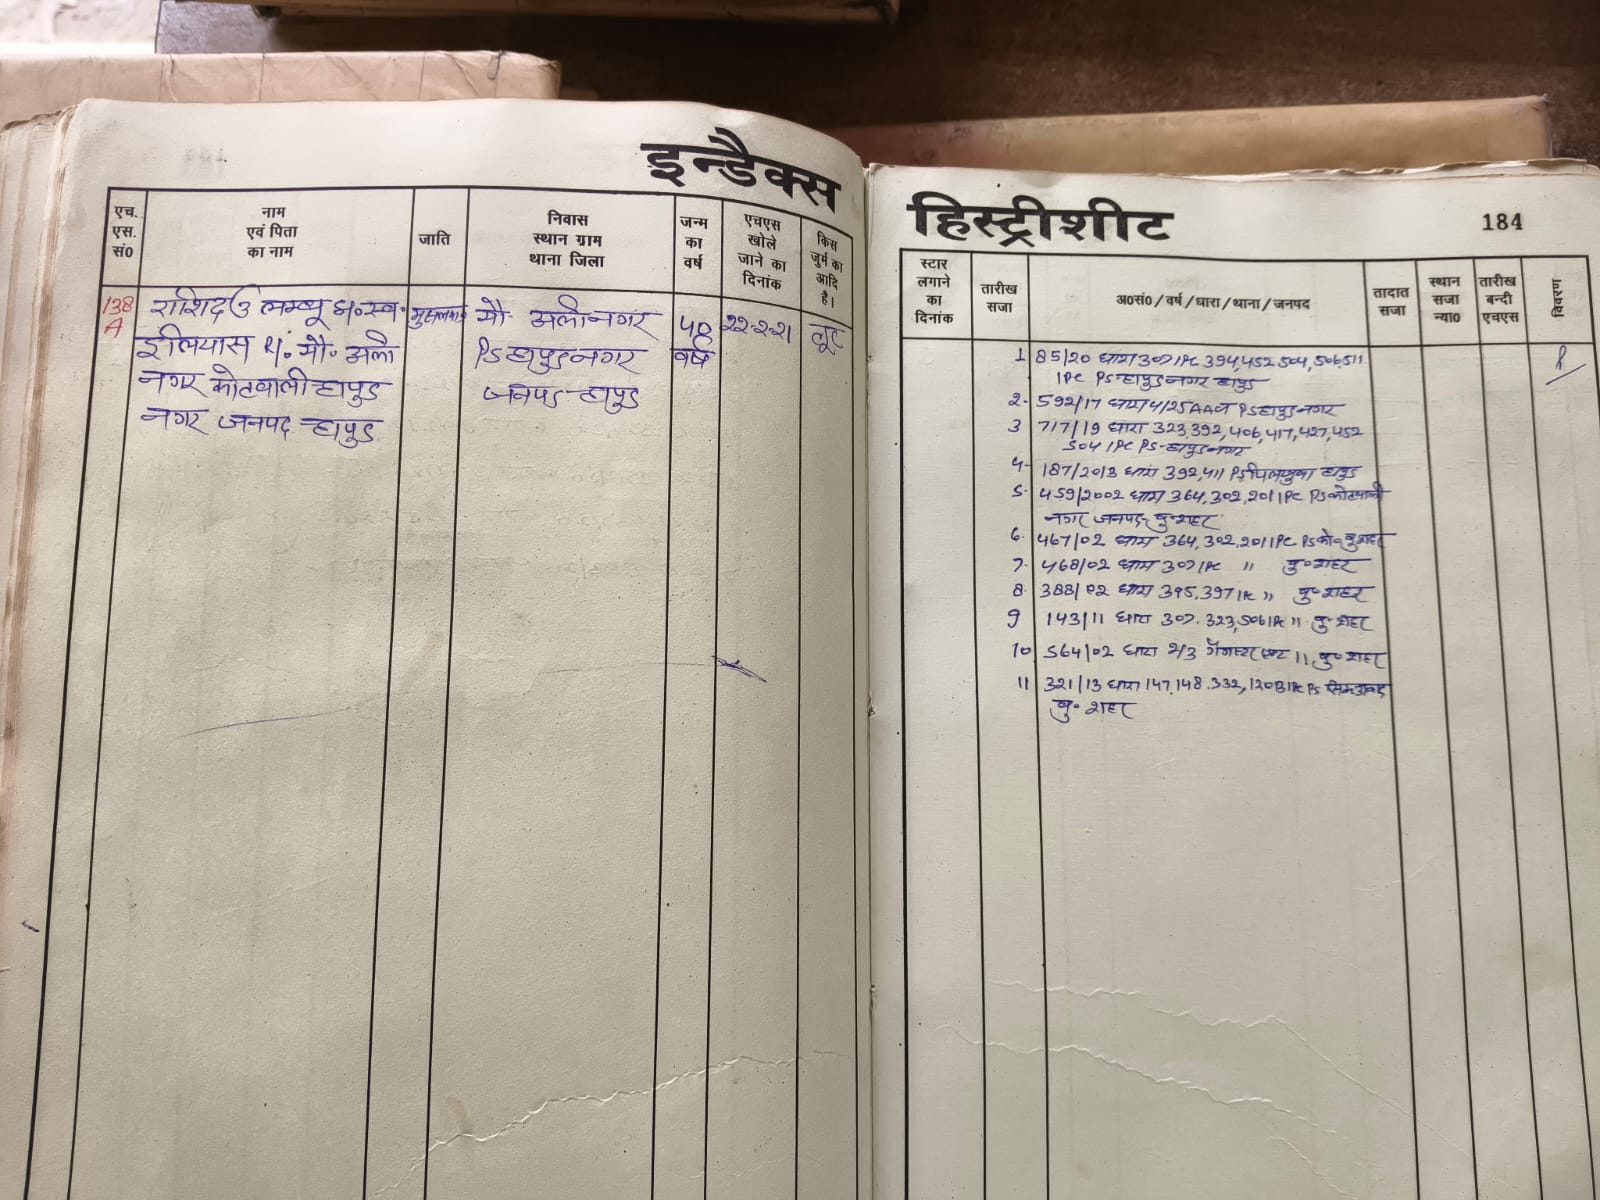 इन्डैक्स
एच. एस. सं0
नाम एवं पिता का नाम
जाति
निवास स्थान ग्राम थाना जिला
जन्म का वर्ष
एचएस खोले जाने का दिनांक
किस जुर्म का आदि है।
138 A
राशिद उ लम्बू पु॰ स्व॰
इलियास R/. मौ॰ अली
नगर कोतवाली हापुड
नगर जनपद हापुड
मुसलमान
मौ॰ अलीनगर
PS हापुड नगर
जनपद हापुड
वर्ष
22-2-21
लूट
हिस्ट्रीशीट
184
स्टार लगाने का दिनांक
तारीख सजा
अ0सं0/वर्ष/धारा/थाना/जनपद
तादात सजा
स्थान सजा न्या0
तारीख बन्दी एचएस
विवरण
1 85/20 धारा 307 IPC 394,452 504, 506, 511
IPC PS हापुड नगर हापुड
2- 592/17 धारा 4/25 A Act PS हापुड नगर
3 717/19 धारा 323, 392, 406, 417, 427, 452
504 IPC PS- हापुड नगर
4- 187/2013 धारा 392, 411 PS पिलखुवा हापुड
5- 459/2002 धारा 364, 302, 201 IPC PS कोतवाली
नगर जनपद- बु॰शहर
6- 467/02 धारा 364, 302, 201 IPC PS को॰ बु॰शहर
7- 468/02 धारा 307 IPC " बु॰शहर
8- 388/02 धारा 395, 397 IPC " बु॰शहर
9 143/11 धारा 307, 323, 506 IPC " बु॰शहर
10 564/02 धारा 2/3 गैंगस्टर एक्ट " बु॰शहर
11 321/13 धारा 147, 148, 332, 120B IPC PS
बु॰ शहर